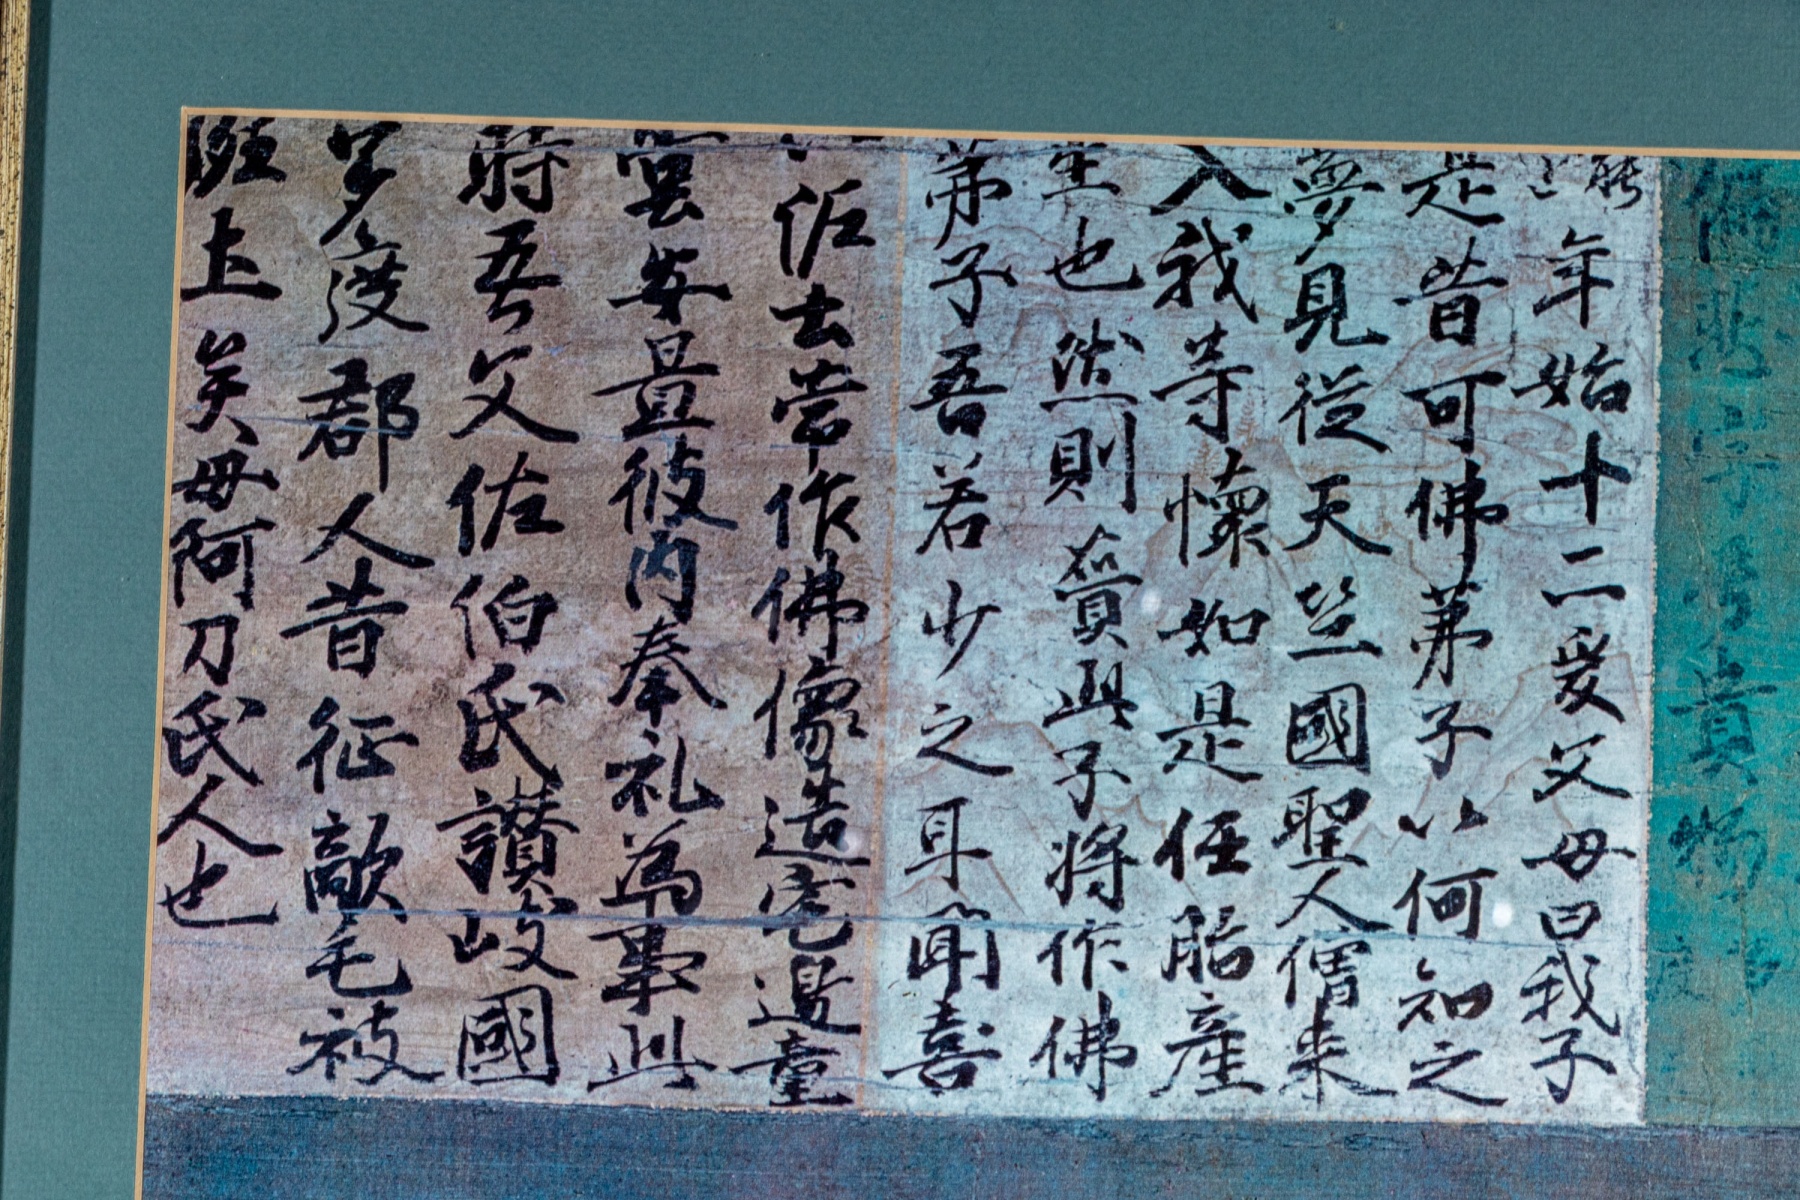 年始十二爰父母曰我子
是昔可佛弟子以何知之
夢見從天竺國聖人僧来
入我等懐如是任胎産
生也然則賷此子将作佛
弟子吾若少之耳聞喜
土常作佛像造宅邊童
安置彼内奉礼為事此
時吾父佐伯氏讃岐國
多度郡人昔征敵毛被
班土矣母阿刀氏人也